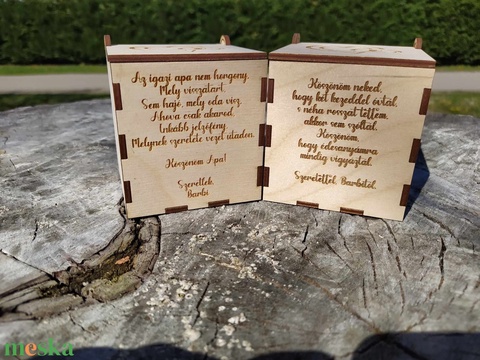 Az igazi apa nem horgony,
Mely visszatart,
Sem hajó, mely oda visz,
Ahova csak akarod,
Inkább jelzőfény,
Melynek szeretete vezet utadon.
Köszönöm Apa!
Szeretlek
Barbi
Köszönöm neked,
hogy két kezeddel óvtál,
s néha rosszat tettem,
akkor sem szóltál,
Köszönöm,
hogy édesanyámra
mindig vigyáztál.
Szeretettel, Barbitól
meska